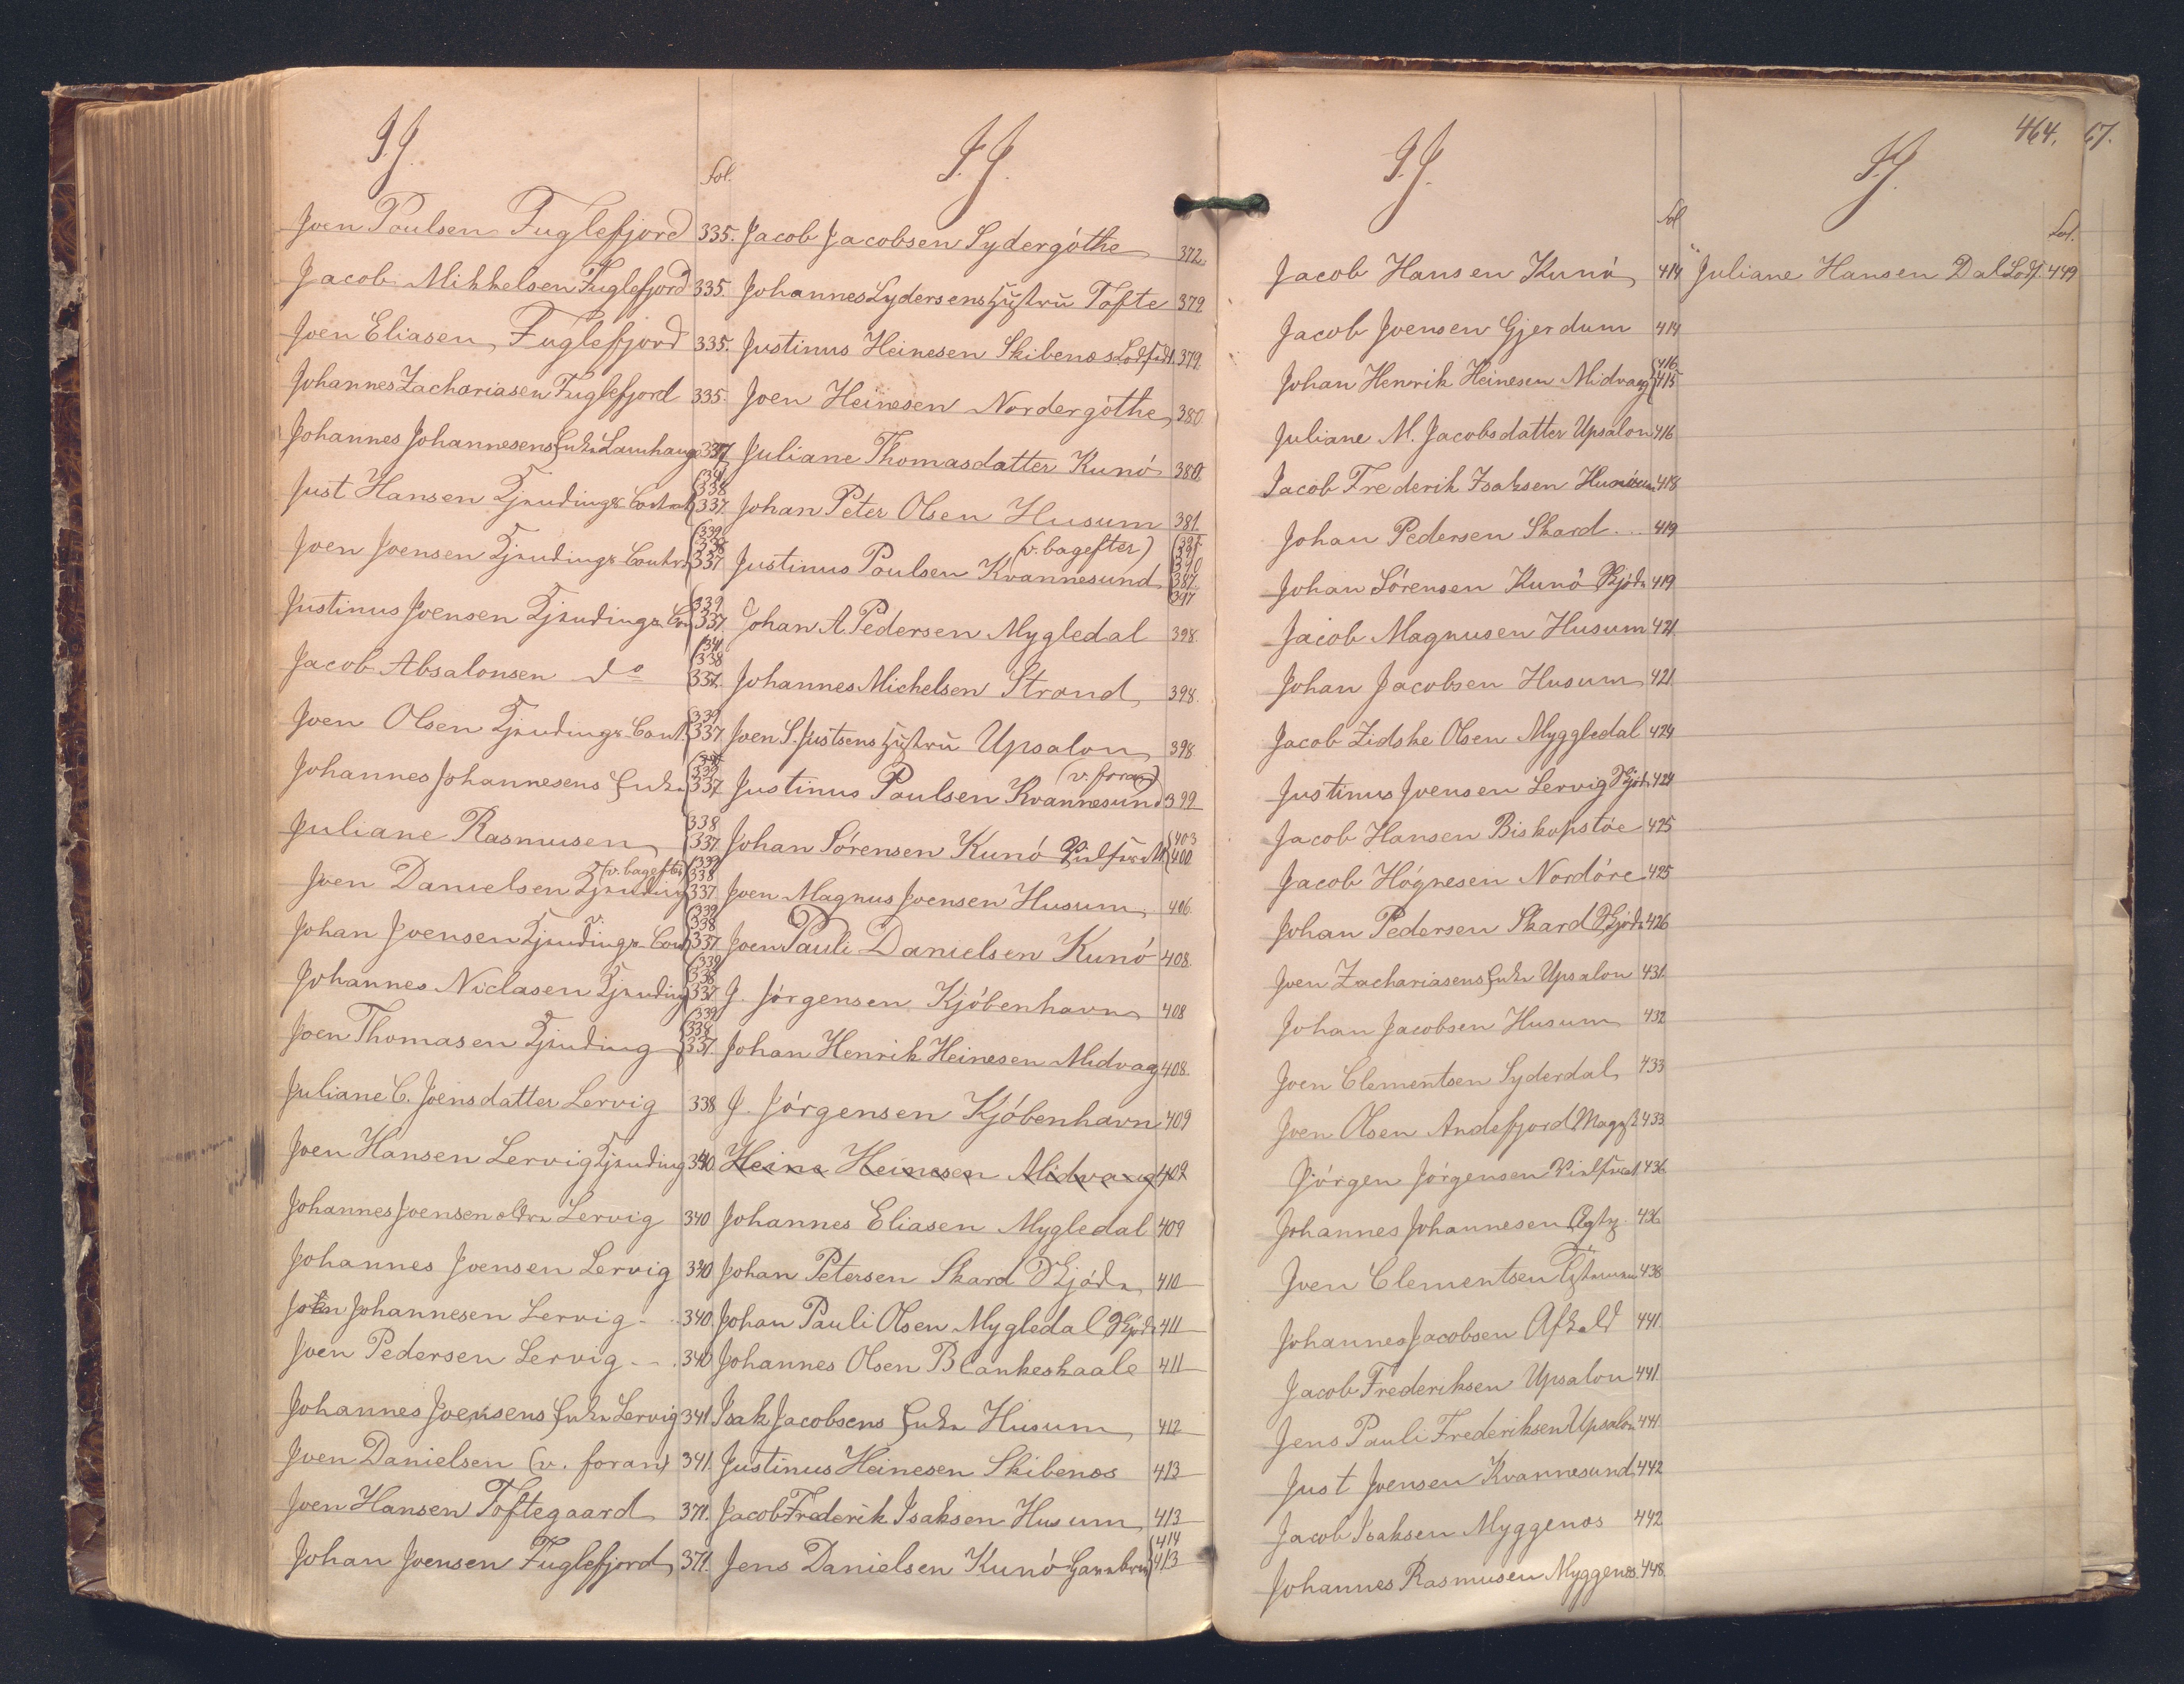 I. J.
Fol.
Joen Poulsen Fuglefjord 335.
Jacob Mikkelsen Fuglefjord 335.
Joen Eliasen, Fuglefjord 335.
Johannes Zachariasen Fuglefjord 335.
Johannes Johannesens Enke Lamhauge 337
Just Hansen Tjending 341 338 337.
Joen Joensen Tjending 339 338 337
Justinus Joensen Tjending 339 337.
Jacob Absalonsen do 341 338 337.
Joen Olsen Tjending 339 337
Johannes Johannesens Enke 339 337
Juliane Rasmusen 338 337.
(v. bagefter)
Joen Danielsen Tjending 339 338 337
Johan Joensen Tjending 339 338 337
Johannes Niclasen Tjending 339 338 337
Joen Thomasen Tjending 339 338 337.
Juliane C. Joensdatter Lervig 338
Joen Hansen Lervig Tjending 340
Johannes Joensen ældre Lervig 340
Johannes Joensen Lervig 340
Johannesen Lervig 340.
Joen Pedersen Lervig 340
Johannes Joensens Enke Lervig 341
Joen Danielsen (v. foran) 341.
Joen Hansen Toftegaard 371.
Johan Joensen Fuglefjord 371.
I. J.
Jacob Jacobsen Sydergöthe 372.
Johannes Lydersens Hustru Tofte 379
Justinus Heinesen Skibenæs 379.
Joen Heinesen Nordergöthe 380.
Juliane Thomasdatter Kunö 380.
Johan Peter Olsen Husum 381.
(v. bagefter)
Justinus Poulsen Kvannesund 391 390 387. 397
Johan A Pedersen Mygledal 398
Johannes Michelsen Strand 398.
Joen S. Justsens Hustru Upsalon 398
(v. foran)
Justinus Poulsen Kvannesund 399
Johan Sörensen Kunö 403 400
Joen Magnus Joensen Husum 406.
Joen Pauli Danielsen Kunö 408.
J. Jörgensen Kjöbenhavn 408
Johan Henrik Heinesen Midvag 408.
J. Jörgensen Kjöbenhavn 409
Heine Heinesen Midvaag 409
Johannes Eliasen Mygledal 409
Johan Petersen Skard Skjöde 410
Johan Pauli Olsen Mygledal Skjöde 411
Johannes Olsen Blankeskaale 411
Isak Jacobsens Enke Husum 412
Justinus Heinesen Skibenæs 413
Jacob Frederik Isaksen Husum 413
Jens Danielsen Kunö 414 413
I. J.
Fol
Jacob Hansen Kunö 414
Jacob Joensen Gjerdum 414
Johan Henrik Heinesen Midvaag 416 415
Juliane M. Jacobsdatter Upsalon 416
Jacob Frederik Isaksen Husum 418
Johan Pedersen Skard 419
Johan Sörensen Kunö Skjöde 419
Jacob Magnusen Husum 421
Johan Jacobsen Husum 421
Jacob Zidske Olsen Myggledal 424
Justinus Joensen Lervig Skjöde 424
Jacob Hansen Biskopstöe 425
Jacob Högnesen Nordöre 425
Johan Pedersen Skard Skjöde 426
Joen Zachariasens Enke Upsalon 431.
Johan Jacobsen Husum 432
Joen Clementsen Syderdal 433
Joen Olsen Andefjord 433
Jörgen Jörgensen 436
Johannes Johannesen 436
Joen Clementsen 438
Johannes Jacobsen Afkald 441.
Jacob Frederiksen Upsalon 441.
Jens Pauli Frederiksen Upsalon 441
Just Joensen Kvannesund 442
Jacob Isaksen Myggenæs 442
Johannes Rasmusen Myggenæs 448.
464. 67.
I. J.
Fol.
Juliane Hansen Dal 449